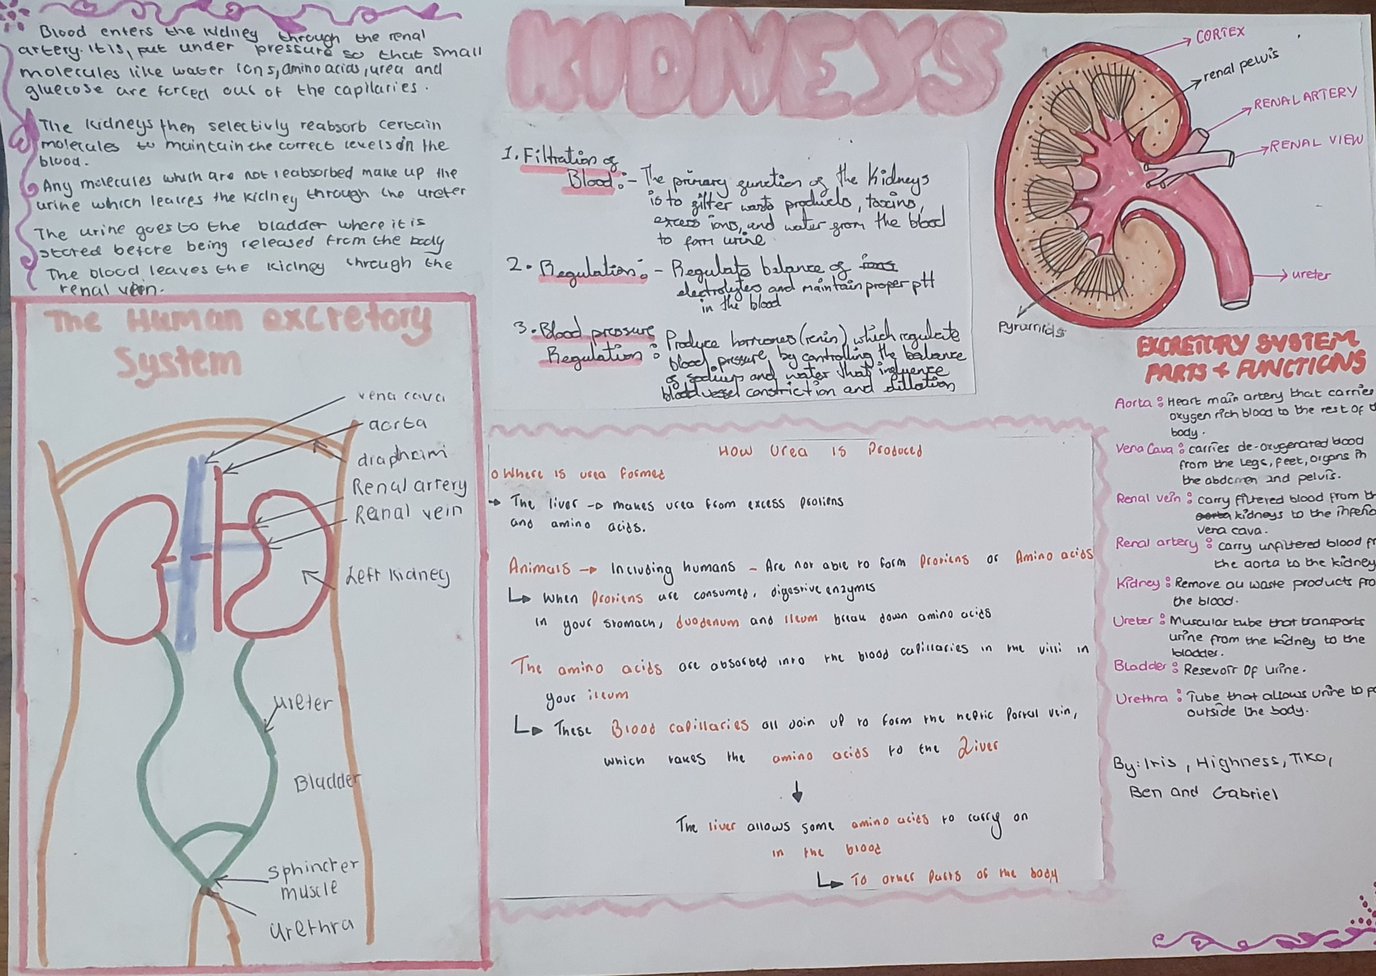 Blood enters the kidney through the renal
artery. It is, put under pressure so that small
molecules like water ions, amino acids, urea and
gluecose are forced out of the capilaries.
The kidneys then selectivly reabsorb certain
molecules to maintain the correct levels in the
blood.
Any molecules which are not reabsorbed make up the
urine which leaves the kidney through the ureter
The urine goes to the bladder where it is
stored before being released from the body
The blood leaves the kidney through the
renal vein.
The Human excretory
System
vena cava
aorta
diapheim
Renal artery
Renal vein
Left Kidney
ureter
Bladder
sphincter
muscle
urethra
KIDNEYS
1. Filtration of
Blood:- The primary function of the Kidneys
is to filter waste products, toxins,
excess ions, and water from the blood
to form urine.
2. Regulation: - Regulate balance of ions
electrolytes and maintain proper pH
in the blood
3. Blood pressure Produce hormones (renin) which regulate
Regulation: blood pressure by controlling the balance
of sodium and water that influence
blood vessel constriction and dillation
How Urea is Produced
o Where is urea formed
→ The liver → makes urea from excess protiens
and amino acids.
Animals → Including humans - Are not able to form Protiens or Amino acids
↳ When Protiens are consumed, digestive enzymes
in your stomach, duodenum and Ileum break down amino acids
The amino acids are absorbed into the blood capillaries in the villi in
your ileum
↳ These Blood capillaries all join up to form the heptic Portal vein,
which takes the amino acids to the Liver
↓
The liver allows some amino acids to carry on
in the blood
↳ To other Parts of the body
CORTEX
renal pelvis
RENAL ARTERY
RENAL VIEW
ureter
Pyramids
EXCRETORY SYSTEM
PARTS + FUNCTIONS
Aorta: Heart main artery that carries
oxygen rich blood to the rest of
body.
Vena Cava: carries de-oxygerated blood
from the legs, feet, organs in
the abdomen and pelvis.
Renal vein: carry filtered blood from
aorta kidneys to the
vena cava.
Renal artery: carry unfiltered blood
the aorta to the kidney
Kidney: Remove all waste products
the blood.
Ureter: Muscular tube that transports
urine from the kidney to the
bladder.
Bladder: Resevoir Of urine.
Urethra: Tube that allows urine to
outside the body.
By: Iris, Highness, Tiko,
Ben and Gabriel